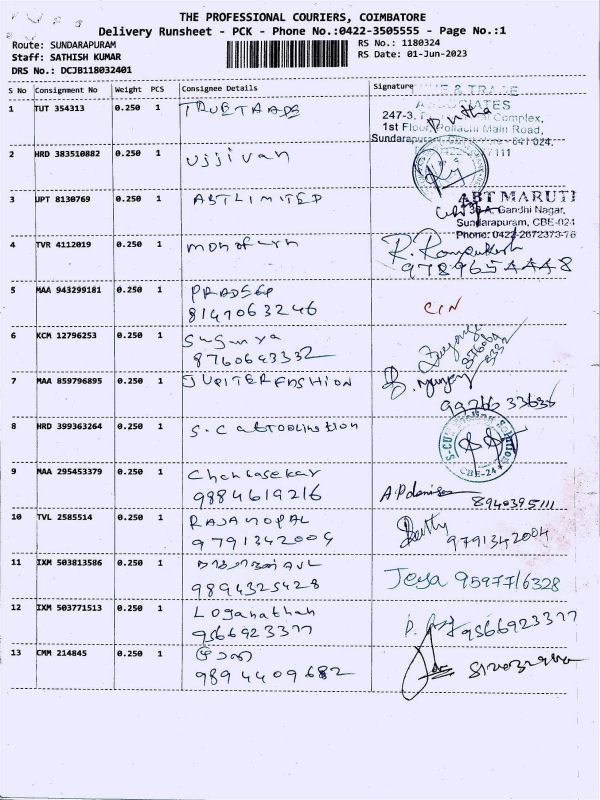 THE PROFESSIONAL COURIERS, COIMBATORE
Delivery Runsheet - PCK - Phone No.:0422-3505555 - Page No.:1
Route: SUNDARAPURAM
RS No.: 1180324
Staff: SATHISH KUMAR
RS Date: 01-Jun-2023
DRS No.: DCJB118032401
S No Consignment No Weight PCS Consignee Details Signature
& TRADE
1 TUT 354313 0.250 1 TRUETRADE
ASSOCIATES
247-3, Complex,
1st Floor, Pollachi Main Road,
Sundarapuram, 641 024.
2 HRD 383510882 0.250 1 Ujjivan
3 JPT 8130769 0.250 1 ABTLIMITED
ABT MARUTI
Gandhi Nagar,
Sundarapuram, CBE-024
Phone: 0422-2672373-76
4 TVR 4112019 0.250 1
9789654448
5 MAA 943299181 0.250 1 PRADEEP
8147063246
CIN
6 KCM 12796253 0.250 1 Suganya
8760643332
7 MAA 859796895 0.250 1 JUPITERFASHION
8 HRD 399363264 0.250 1
CBE-24
9 MAA 295453379 0.250 1
9884619216
8940395111
10 TVL 2585514 0.250 1 RAJAGOPAL
9791342004
9791342004
11 IXM 503813586 0.250 1
9894325428
Jeya 9597716328
12 IXM 503771513 0.250 1 Loganathan
9566923377
9566923377
13 CMM 214845 0.250 1
9894409682